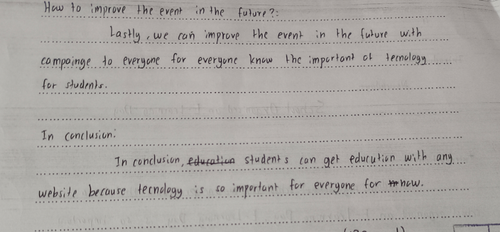 How to improve the event in the future?:
Lastly, we can improve the event in the future with
campainge to everyone for everyone know the important of tecnology
for students.
In conclusion:
In conclusion, education students can get educution with any
website because tecnology is so important for everyone for now.